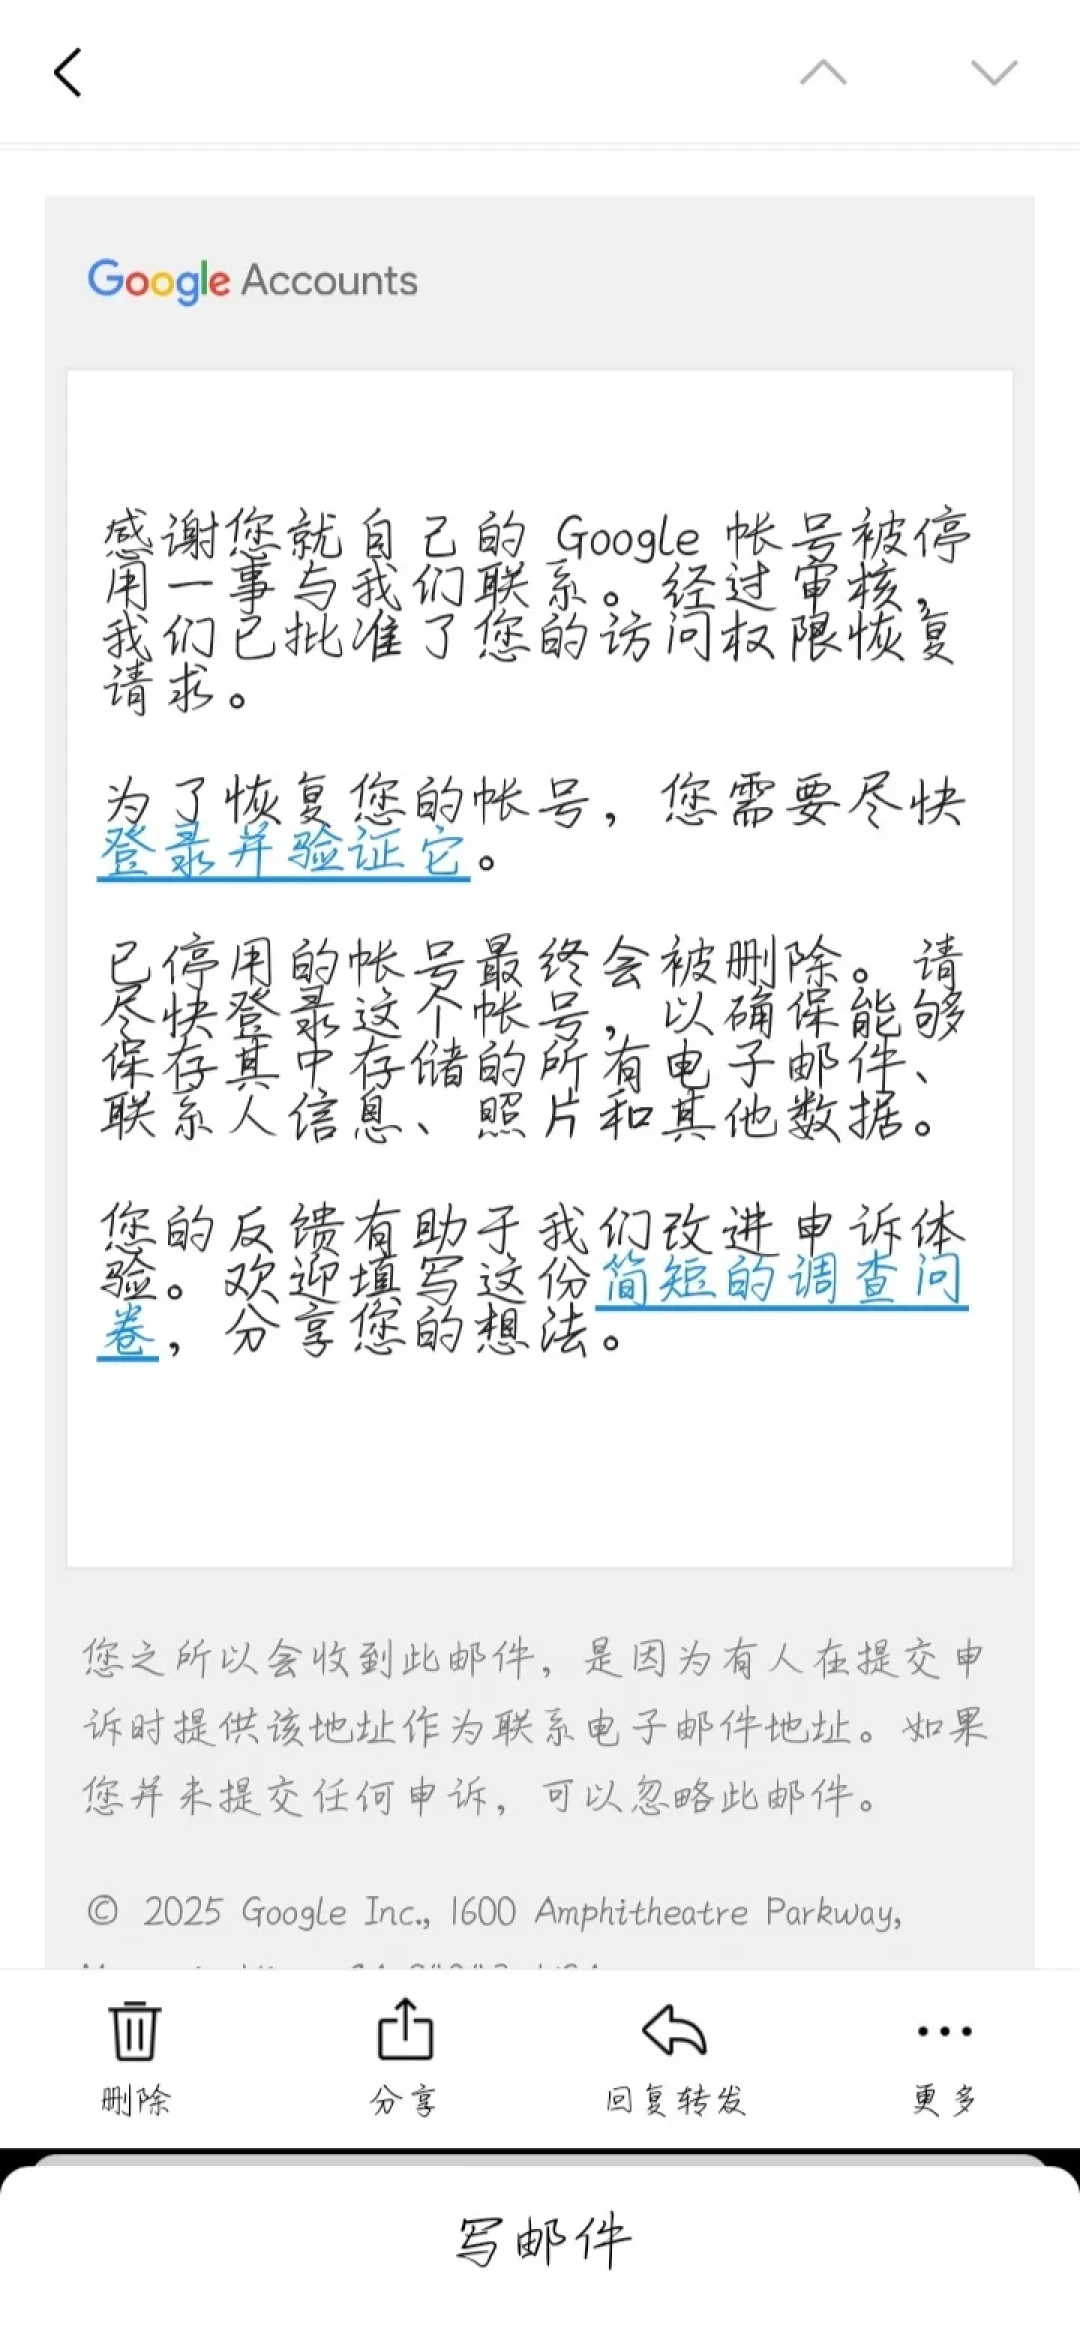 Google Accounts
感谢您就自己的 Google 帐号被停
用一事与我们联系。经过审核，
我们已批准了您的访问权限恢复
请求。
为了恢复您的帐号，您需要尽快
登录并验证它。
已停用的帐号最终会被删除。请
尽快登录这个帐号，以确保能够
保存其中存储的所有电子邮件、
联系人信息、照片和其他数据。
您的反馈有助于我们改进申诉体
验。欢迎填写这份简短的调查问
卷，分享您的想法。
您之所以会收到此邮件，是因为有人在提交申
诉时提供该地址作为联系电子邮件地址。如果
您并未提交任何申诉，可以忽略此邮件。
© 2025 Google Inc., 1600 Amphitheatre Parkway,
删除
分享
回复转发
更多
写邮件